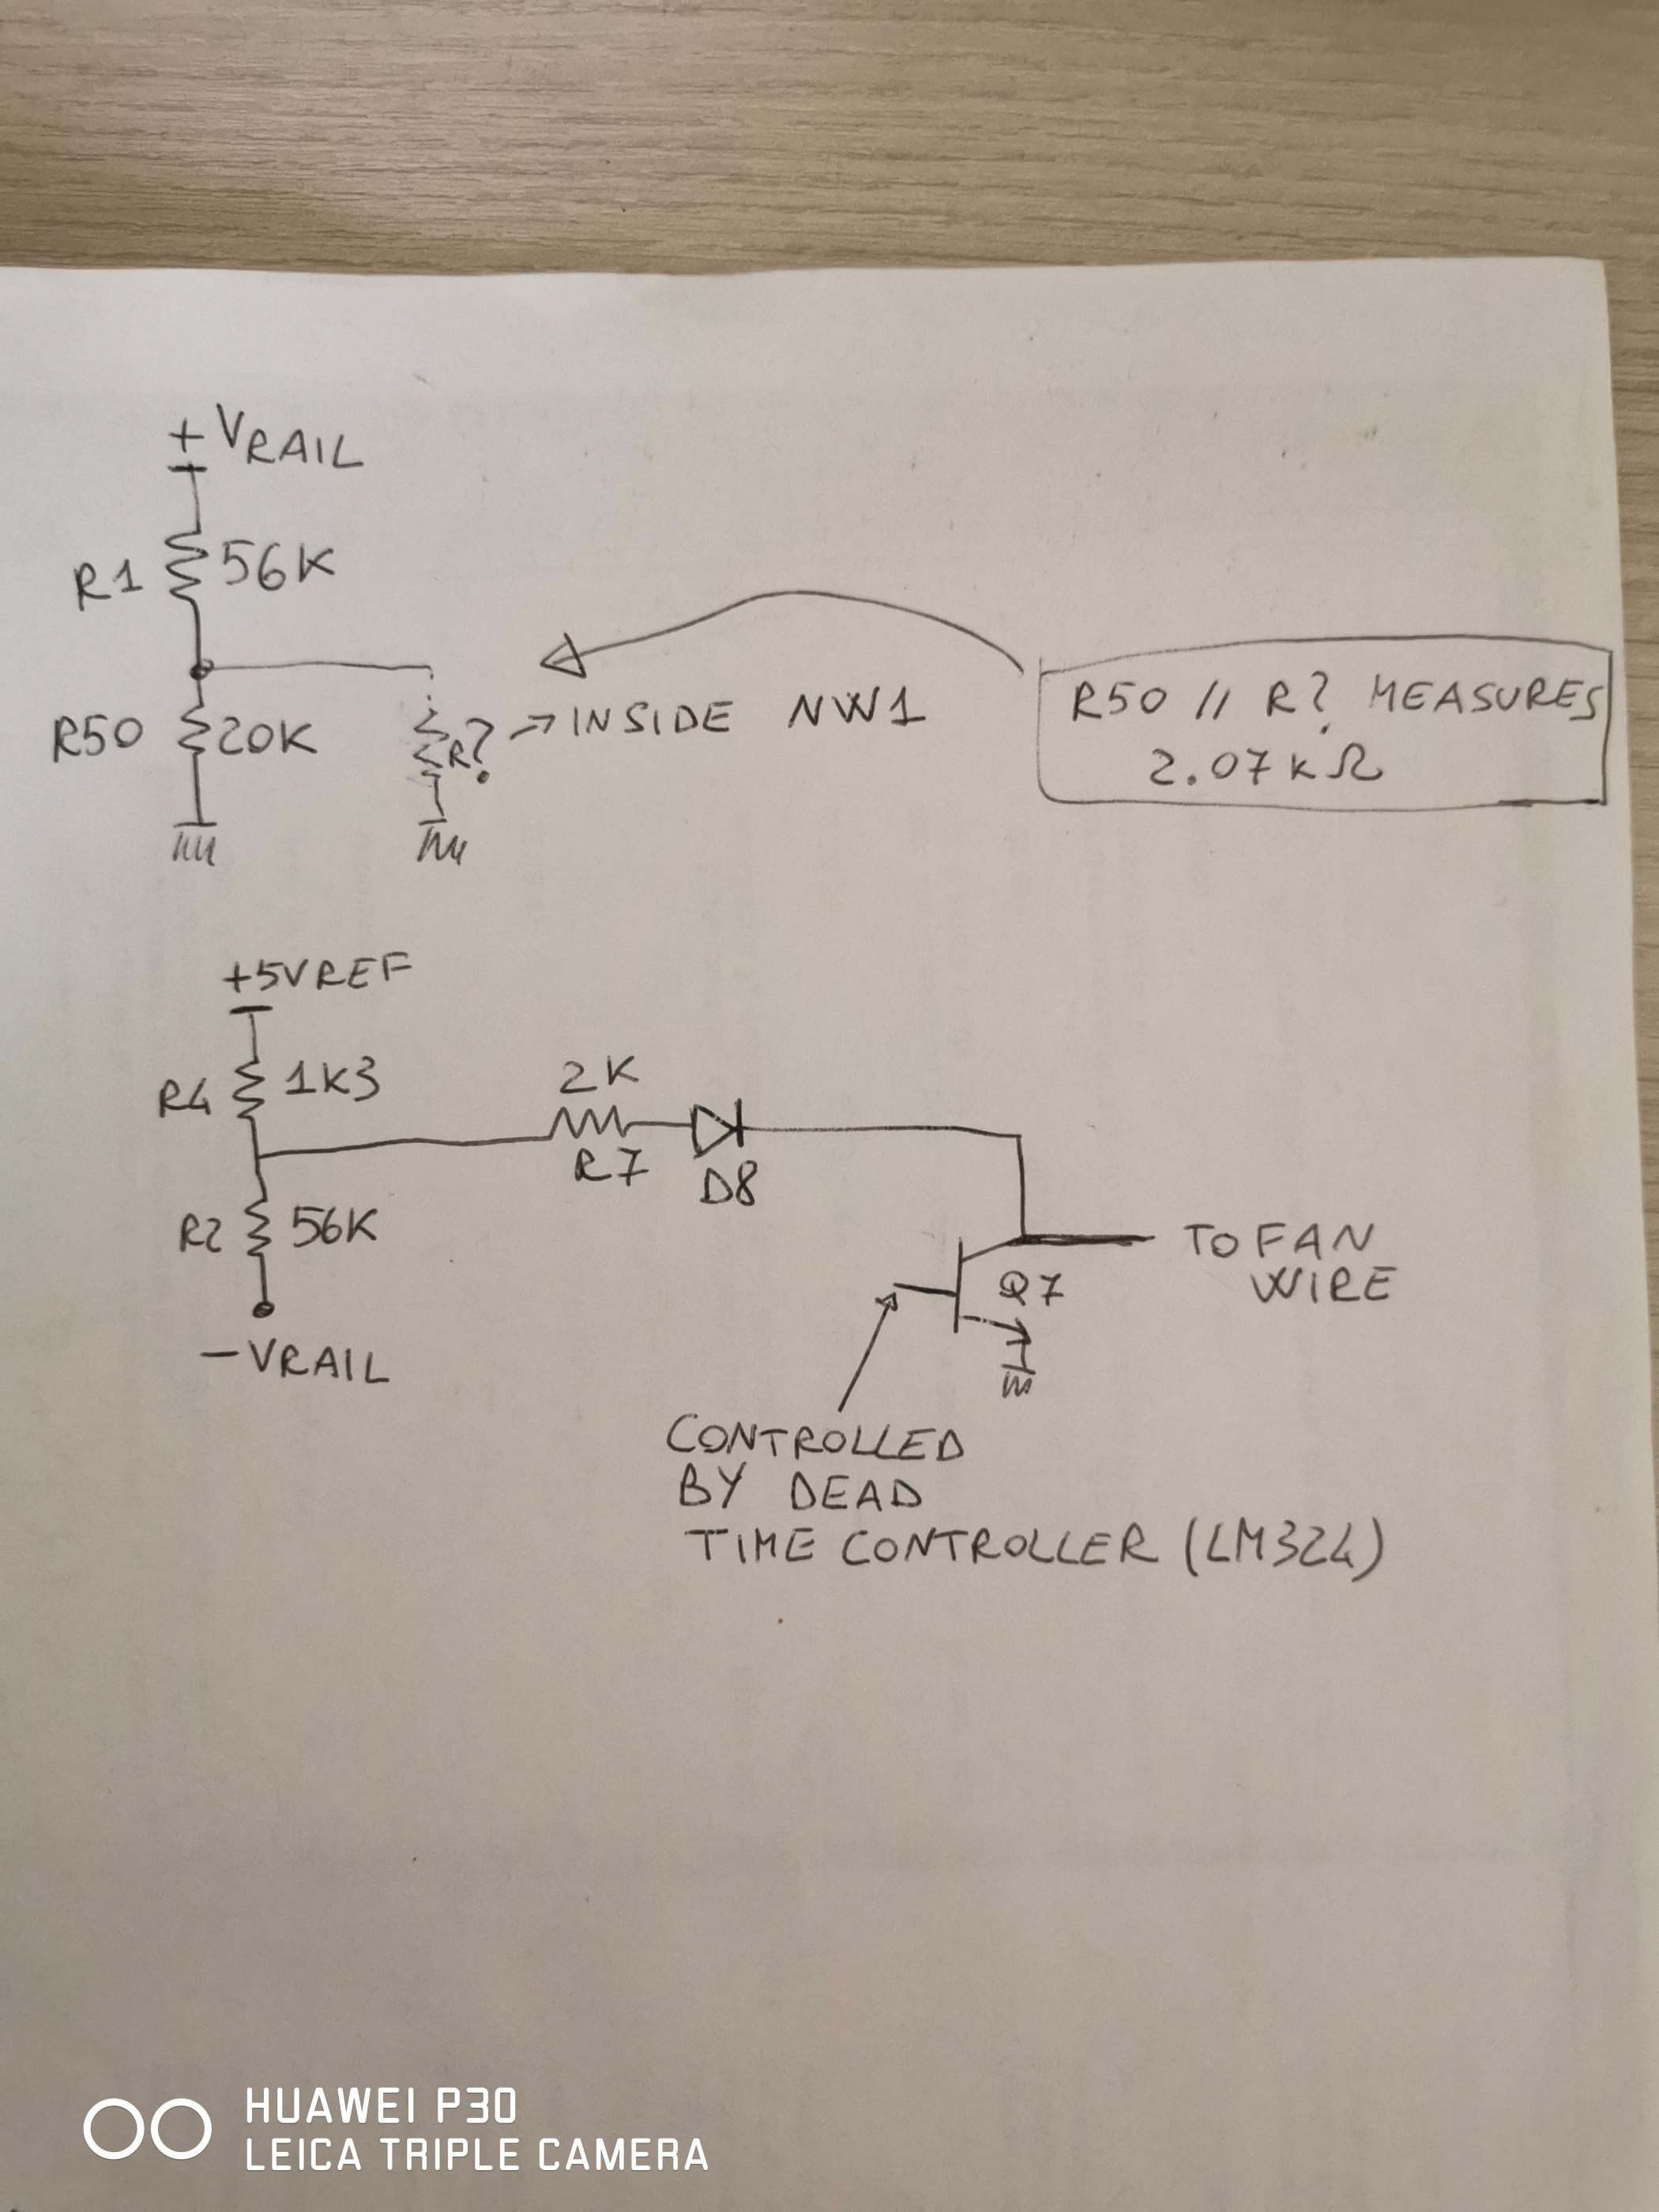 +VRAIL
R1 56K
R50 20K
R? → INSIDE NW1
R50 // R? MEASURES
2.07KΩ
+5VREF
R4 1K3
2K
R7
D8
R2 56K
-VRAIL
Q7
TO FAN
WIRE
CONTROLLED
BY DEAD
TIME CONTROLLER (LM324)
HUAWEI P30
LEICA TRIPLE CAMERA